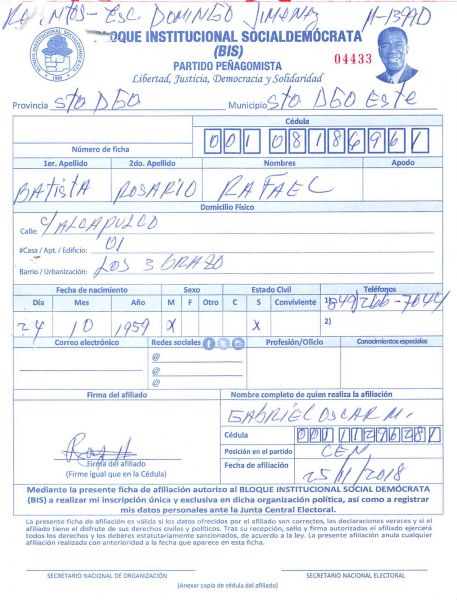 Esc. DOMINGO JIMENEZ
BLOQUE INSTITUCIONAL SOCIALDEMÓCRATA
(BIS)
PARTIDO PEÑAGOMISTA
04433
Libertad, Justicia, Democracia y Solidaridad
Provincia Sto DGO Municipio Sto DGO Este
Cédula
Número de ficha
1er. Apellido 2do. Apellido Nombres Apodo
Batista ROSARIO RAFAEL
Domicilio Físico
Calle:
#Casa / Apt. / Edificio: 01
Barrio / Urbanización: LOS 3 BRAZO
Fecha de nacimiento Sexo Estado Civil Teléfonos
Día Mes Año M F Otro C S Conviviente 1) 849-266-7044
24 10 1959 X X 2)
Correo electrónico Redes sociales Profesión/Oficio Conocimientos especiales
@
@
@
Firma del afiliado Nombre completo de quien realiza la afiliación
GABRIEL OSCAR M.
Cédula
Posición en el partido CEN
Firma del afiliado
(Firme igual que en la Cédula)
Fecha de afiliación 25/11/2018
Mediante la presente ficha de afiliación autorizo al BLOQUE INSTITUCIONAL SOCIAL DEMÓCRATA
(BIS) a realizar mi inscripción única y exclusiva en dicha organización política, así como a registrar
mis datos personales ante la Junta Central Electoral.
La presente ficha de afiliación es válida si los datos ofrecidos por el afiliado son correctos, las declaraciones veraces y si el
afiliado tiene el disfrute de sus derechos civiles y políticos. Tras su recepción, sello y firma autorizadas el afiliado ejercerá
todos los derechos y los deberes estatutariamente sancionados, de acuerdo a la ley. La presente afiliación anula cualquier
afiliación realizada con anterioridad a la fecha que aparece en esta ficha.
SECRETARIO NACIONAL DE ORGANIZACIÓN SECRETARIO NACIONAL ELECTORAL
(Anexar copia de cédula del afiliado)